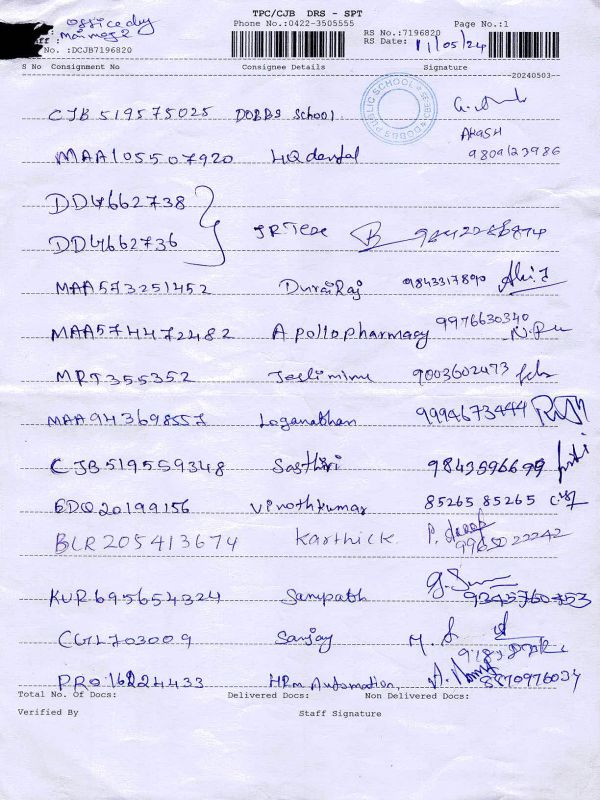 TPC/CJB DRS - SPT
office dry
Phone No.:0422-3505555 Page No.:1
RS No.:7196820
RS Date: 11/05/24
No. :DCJB7196820
S No Consignment No Consignee Details Signature
20240503
DOBBS PUBLIC SCHOOL
CJB 519575025 DOBBS School
AKASH
9809123986
MAA105507920 HQ dental
DD4662738
DD4662736
MAA573251452 Durai Raj 9843317890
MAA574472482 Apollo pharmacy 9976630340
MRT355352 9003602473
MAA943698557 Loganathan 9994673444
CJB519559348 Sasthiri 9843596699
EDQ20199156 Vinothkumar 85265 85265
BLR205413674 Karthick 9965022242
KUR695654324 Sampath 9345760753
CGL703009 Sanjay
PRO16224433 HRM Automation, 8870976034
Total No. Of Docs: Delivered Docs: Non Delivered Docs:
Verified By Staff Signature